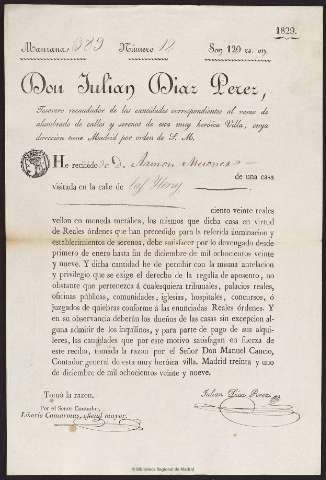 1829.
Manzana 389 Número 12 Son 120 rs. vn.
Don Julian Diaz Perez,
Tesorero recaudador de las cantidades correspondientes al ramo de
alumbrado de calles y serenos de esta muy heróica Villa, cuya
direccion tiene Madrid por orden de S. M.
He recibido de D. Ramon
de una casa
situada en la calle de
ciento veinte reales
vellon en moneda metálica, los mismos que dicha casa en virtud
de Reales órdenes que han precedido para la referida iluminacion y
establecimientos de serenos, debe satisfacer por lo devengado desde
primero de enero hasta fin de diciembre de mil ochocientos veinte
y nueve. Y dicha cantidad he de percibir con la misma antelacion
y privilegio que se exige el derecho de la regalía de aposento, no
obstante que pertenezca á cualesquiera tribunales, palacios reales,
oficinas públicas, comunidades, iglesias, hospitales, concursos, ó
juzgados de quiebras conforme á las enunciadas Reales órdenes. Y
en su observancia deberán los dueños de las casas sin excepcion
alguna admitir de los inquilinos, y para parte de pago de sus alqui-
leres, las cantidades que por este motivo satisfagan en fuerza de
este recibo, tomada la razon por el Señor Don Manuel Cancio,
Contador general de esta muy heróica villa. Madrid treinta y uno
de diciembre de mil ochocientos veinte y nueve.
Tomó la razon,
Por el Señor Contador,
oficial mayor.
Julian Diaz Perez
© Biblioteca Regional de Madrid